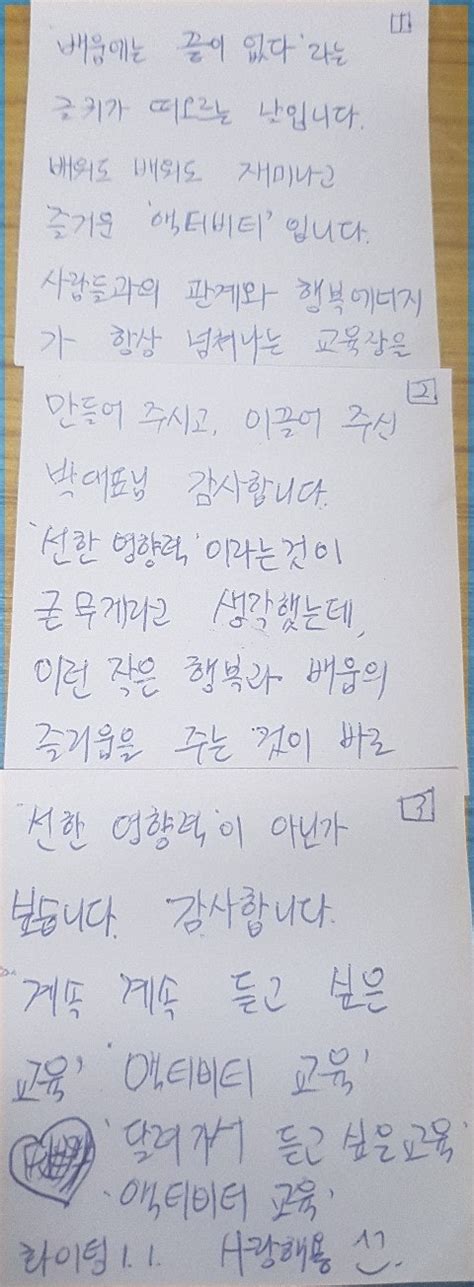 1
'배움에는 끝이 없다'라는
글귀가 떠오르는 날입니다.
배워도 배워도 재미나고
즐거운 '액티비티'입니다.
사람들과의 관계와 행복에너지
가 항상 넘쳐나는 교육장을
2
만들어 주시고, 이끌어 주신
박대표님 감사합니다.
'선한 영향력'이라는것이
큰무게라고 생각했는데,
이런 작은 행복과 배움의
즐거움을 주는 것이 바로
3
'선한 영향력'이 아닌가
봅니다. 감사합니다.
'계속 계속 듣고 싶은
교육' '액티비티 교육'
'달려가서 듣고 싶은교육'
'액티비티 교육'
화이팅!.!. 사랑해용